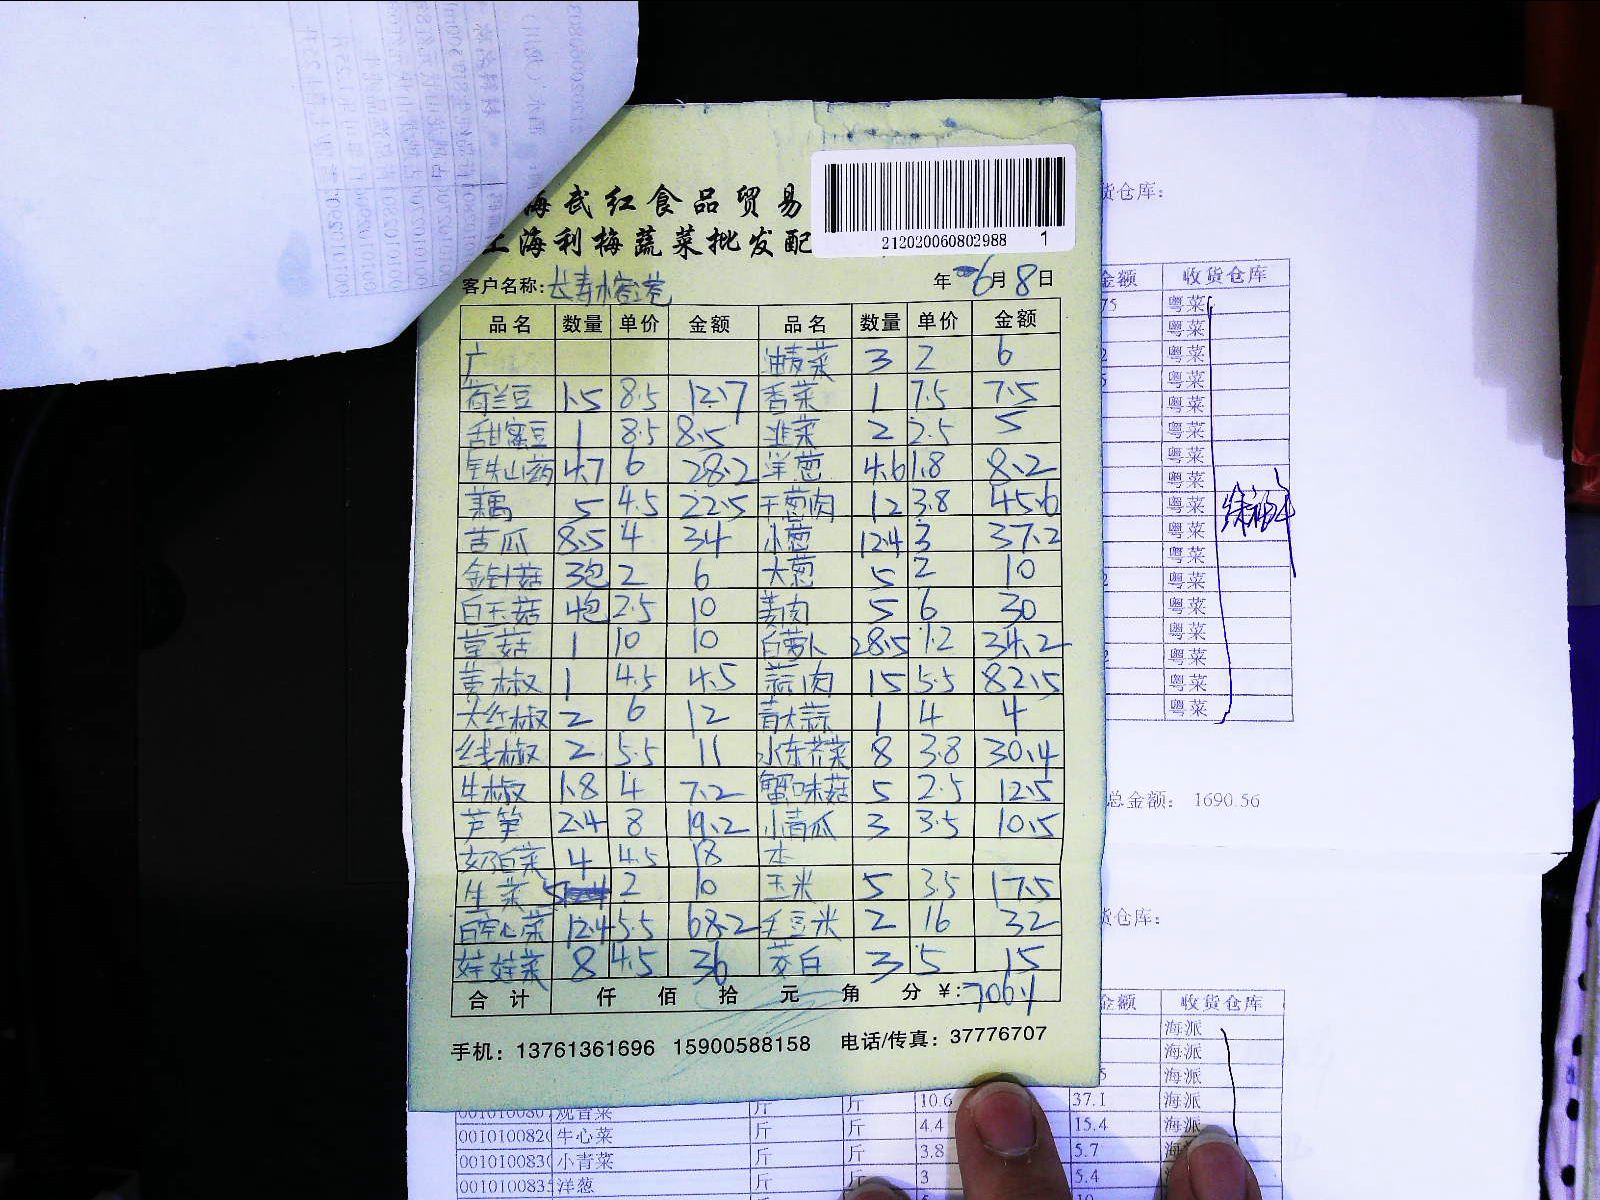 海武红食品贸易
上海利梅蔬菜批发配
212020060802988 1
客户名称: 年 6月8日
品名 数量 单价 金额 品名 数量 单价 金额
广 油麦菜 3 2 6
荷兰豆 1.5 8.5 12.7 香菜 1 7.5 7.5
甜蜜豆 1 8.5 8.5 韭菜 2 2.5 5
铁山药 4.7 6 28.2 洋葱 4.6 1.8 8.2
藕 5 4.5 22.5 干葱肉 12 3.8 45.6
苦瓜 8.5 4 34 小葱 12.4 3 37.2
金针菇 3包 2 6 大葱 5 2 10
白玉菇 4包 2.5 10 姜肉 5 6 30
草菇 1 10 10 白萝卜 28.5 1.2 34.2
黄椒 1 4.5 4.5 蒜肉 15 5.5 82.5
大红椒 2 6 12 青大蒜 1 4 4
线椒 2 5.5 11 水东芥菜 8 3.8 30.4
牛椒 1.8 4 7.2 蟹味菇 5 2.5 12.5
芦笋 2.4 8 19.2 小青瓜 3 3.5 10.5
奶白菜 4 4.5 18 本
生菜 5 2 10 玉米 5 3.5 17.5
空心菜 12.4 5.5 68.2 毛豆米 2 16 32
娃娃菜 8 4.5 36 茭白 3 5 15
合计 仟 佰 拾 元 角 分 ¥: 706.1
手机: 13761361696 15900588158 电话/传真: 37776707
货仓库:
金额 收货仓库
75 粤菜
粤菜
2 粤菜
粤菜
粤菜
粤菜
粤菜
粤菜
粤菜
粤菜
粤菜
2 粤菜
粤菜
粤菜
2 粤菜
粤菜
粤菜
总金额: 1690.56
货仓库:
金额 收货仓库
海派
海派
5 海派
观音菜 斤 斤 10.6 37.1 海派
0010100820 牛心菜 斤 斤 4.4 15.4 海派
0010100830 小青菜 斤 斤 3.8 5.7 海
001010083 洋葱 斤 斤 3 5.4